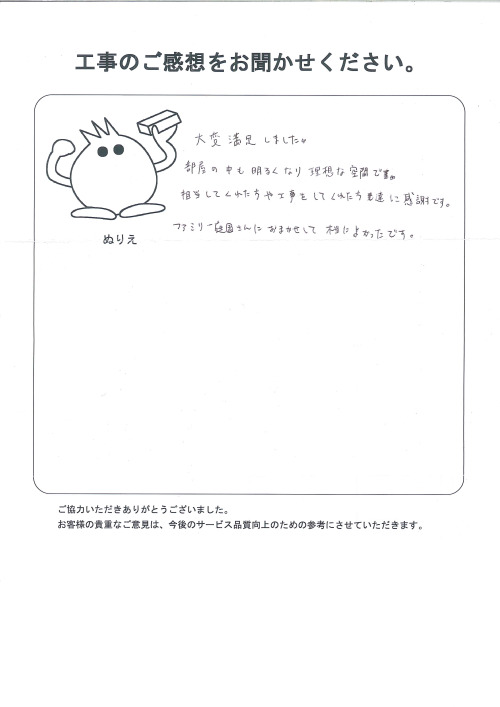 工事のご感想をお聞かせください。
大変満足しました。
部屋の中も明るくなり 理想な空間です。
担当してくれた方や工事をしてくれた方達に感謝です。
ファミリー庭園さんにおまかせして 本当によかったです。
ぬりえ
ご協力いただきありがとうございました。
お客様の貴重なご意見は、今後のサービス品質向上のための参考にさせていただきます。